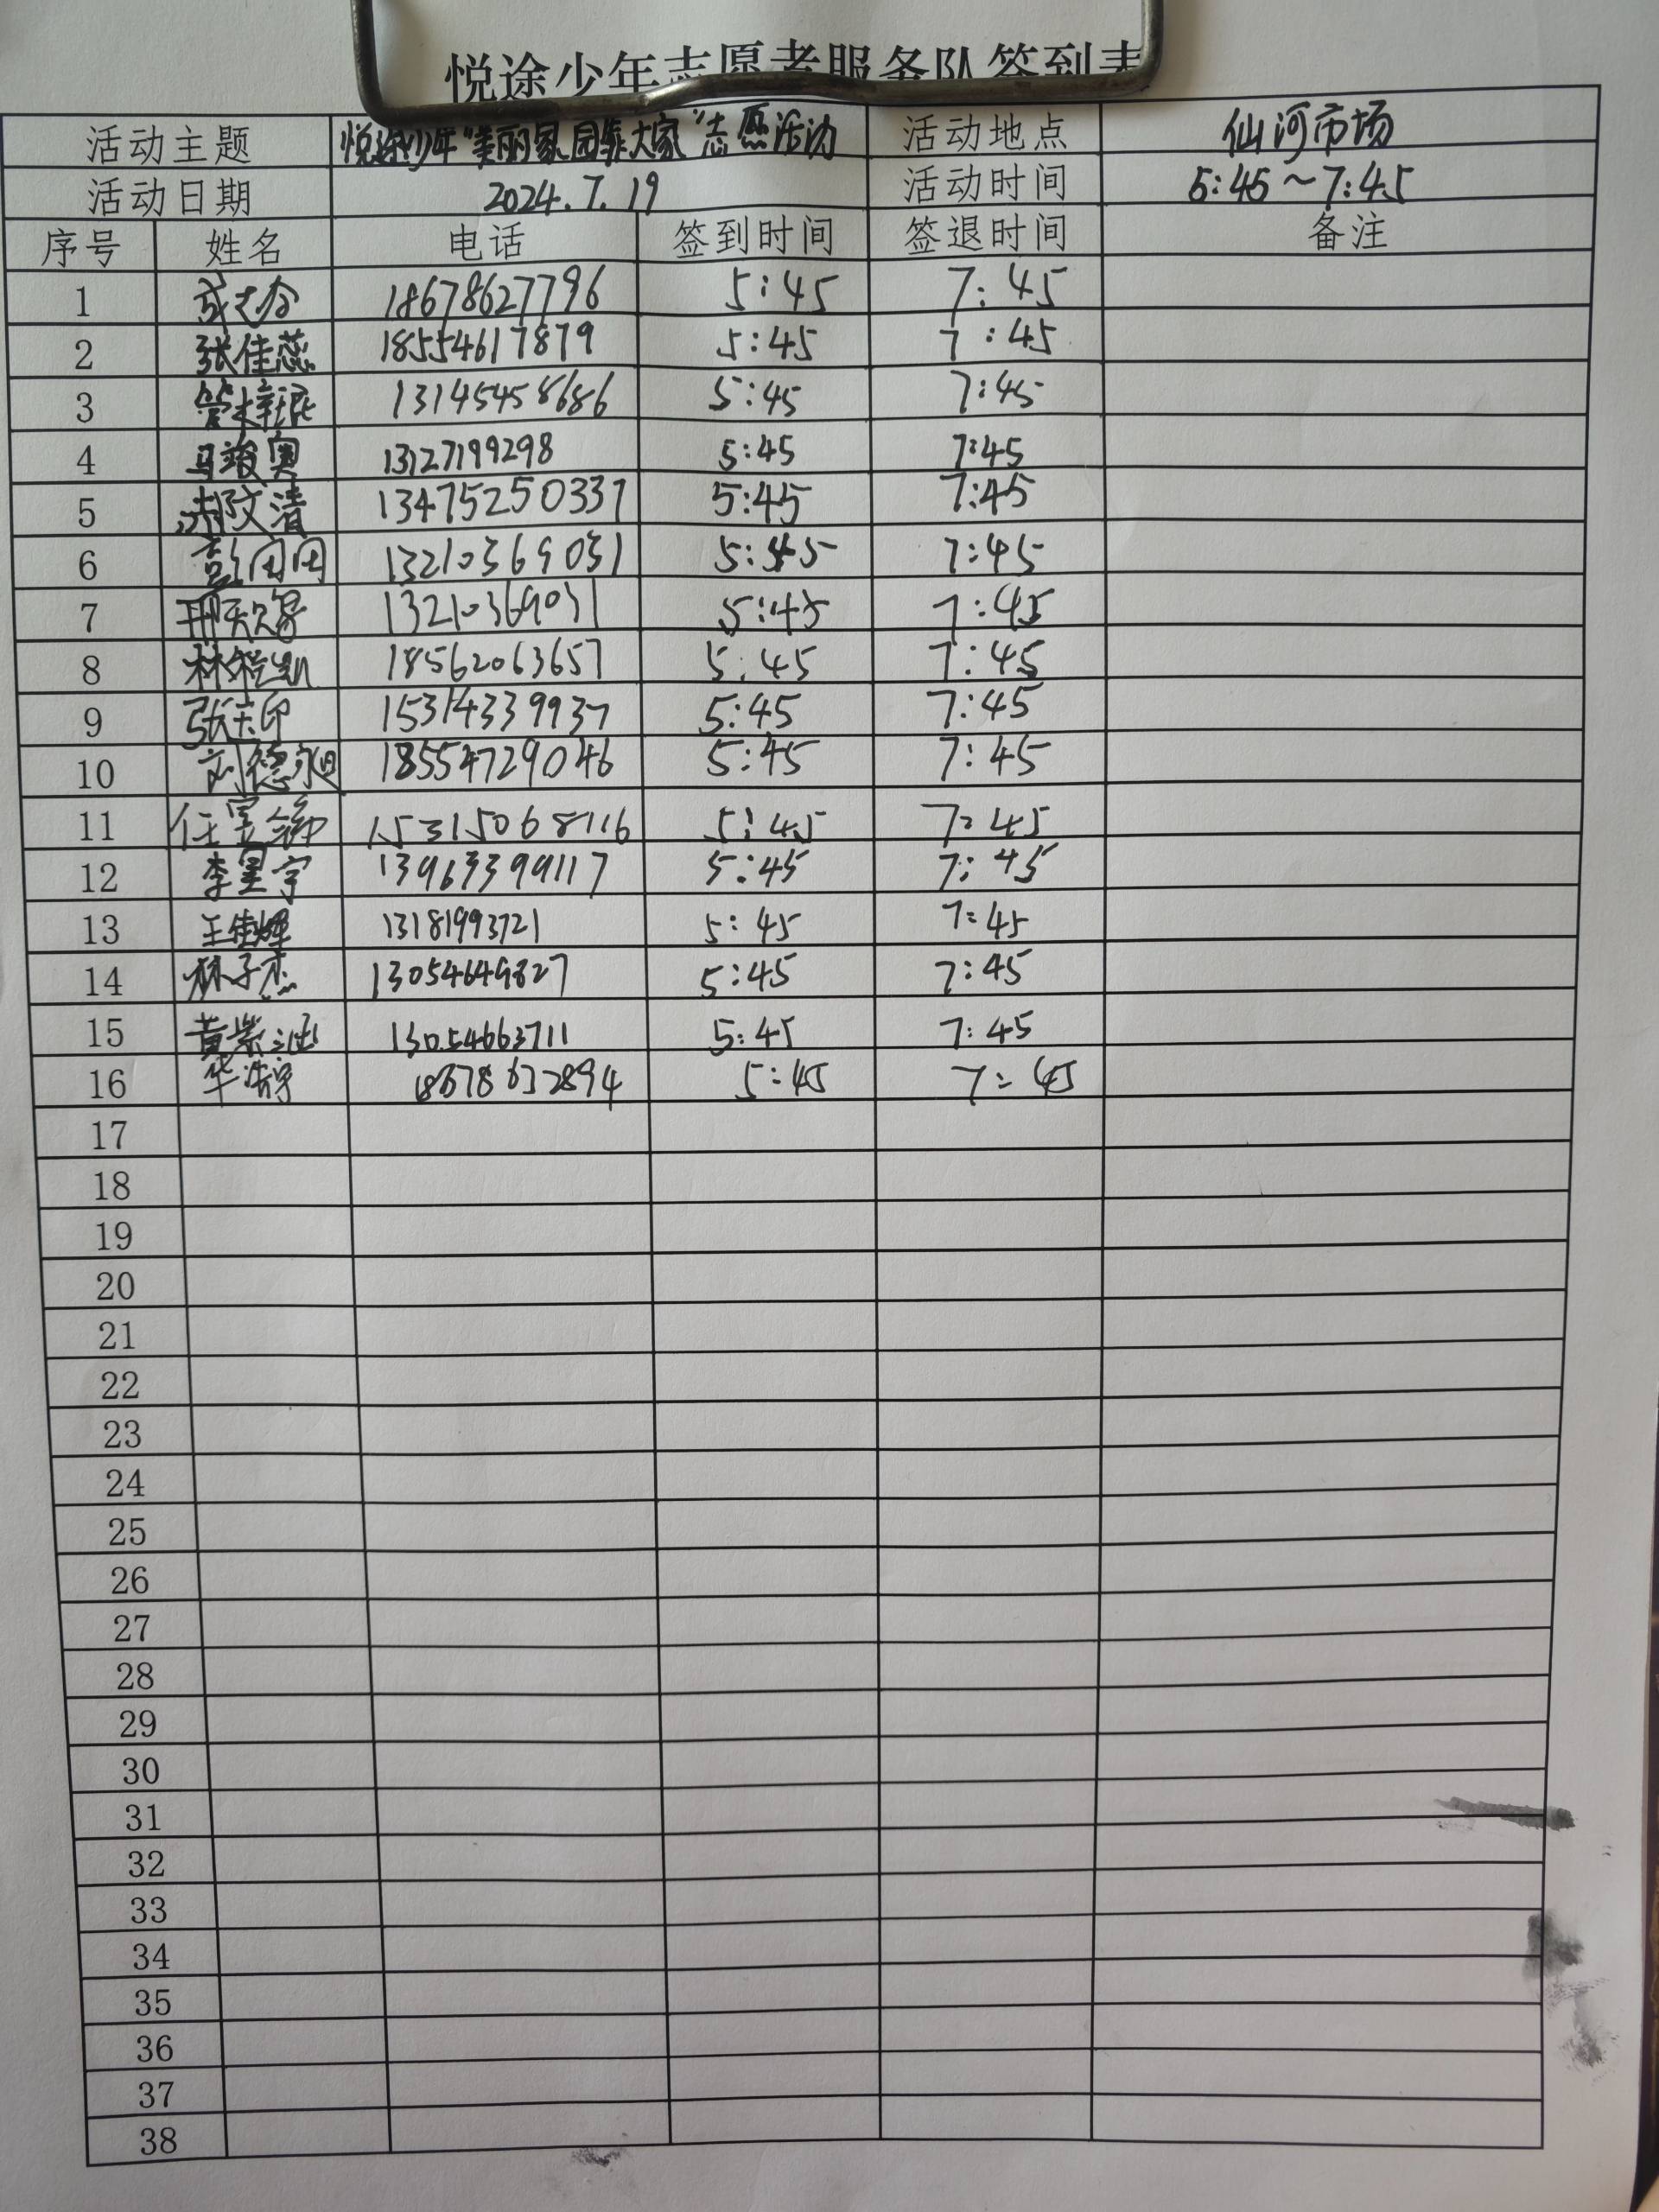 悦途少年志愿者服务队签到表
活动主题 悦途少年“美丽家园靠大家”志愿活动 活动地点 仙河市场
活动日期 2024.7.19 活动时间 5:45~7:45
序号 姓名 电话 签到时间 签退时间 备注
1 18678627796 5:45 7:45
2 张佳蕊 18554617879 5:45 7:45
3 管梓琨 13145458686 5:45 7:45
4 马竣奥 13127199298 5:45 7:45
5 郝文清 13475250337 5:45 7:45
6 彭团团 13210369031 5:45 7:45
7 13210369031 5:45 7:45
8 林程凯 18562063657 5:45 7:45
9 15314339937 5:45 7:45
10 刘德 18554729046 5:45 7:45
11 任 15315068116 5:45 7:45
12 李星宇 13963399117 5:45 7:45
13 王佳辉 13181993721 5:45 7:45
14 林子杰 13054649827 5:45 7:45
15 黄紫涵 13054663711 5:45 7:45
16 华浩宇 18678632894 5:45 7:45
17
18
19
20
21
22
23
24
25
26
27
28
29
30
31
32
33
34
35
36
37
38